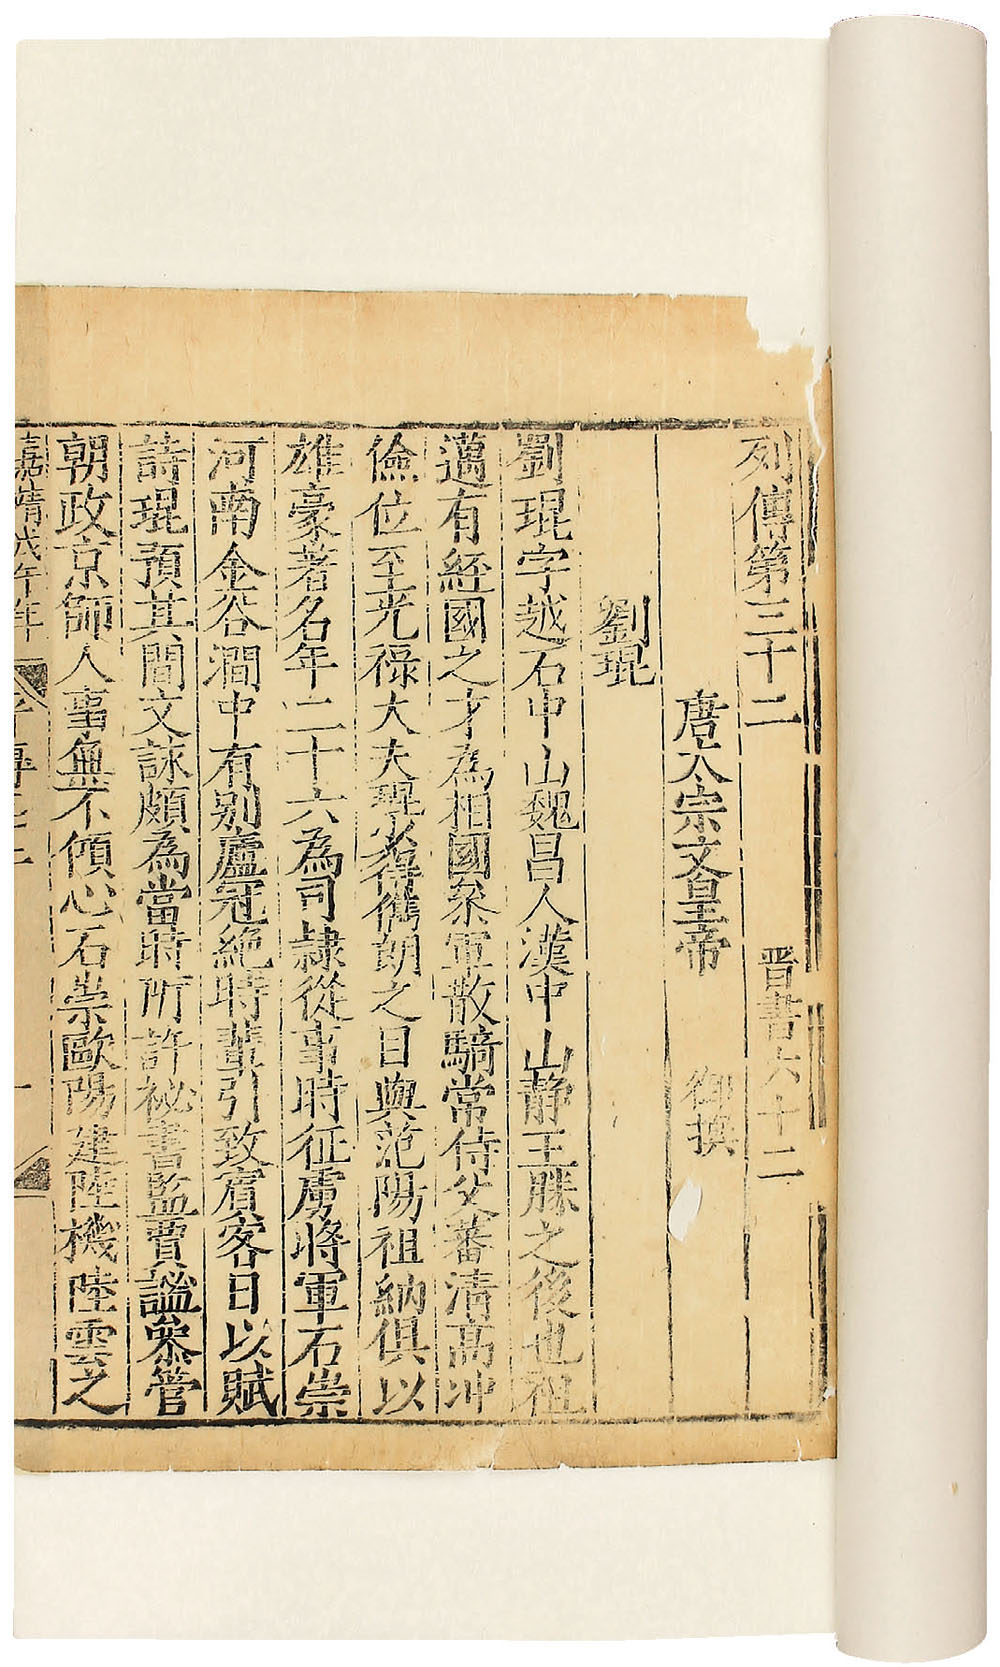 列傳第三十二　晋書六十二
唐太宗文皇帝　御撰
劉琨
劉琨字越石中山魏昌人漢中山静王勝之後也祖
邁有經國之才為相國叅軍散騎常侍父蕃清髙冲
儉位至光禄大夫琨少得儁朗之目與范陽祖納俱以
雄豪著名年二十六為司隷從事時征虜將軍石崇
河南金谷澗中有别廬冠絶時輩引致賔客日以賦
詩琨預其間文詠頗為當時所許祕書監賈謐叅管
朝政京師人事無不傾心石崇歐陽建陸機陸雲之
嘉靖戊午年